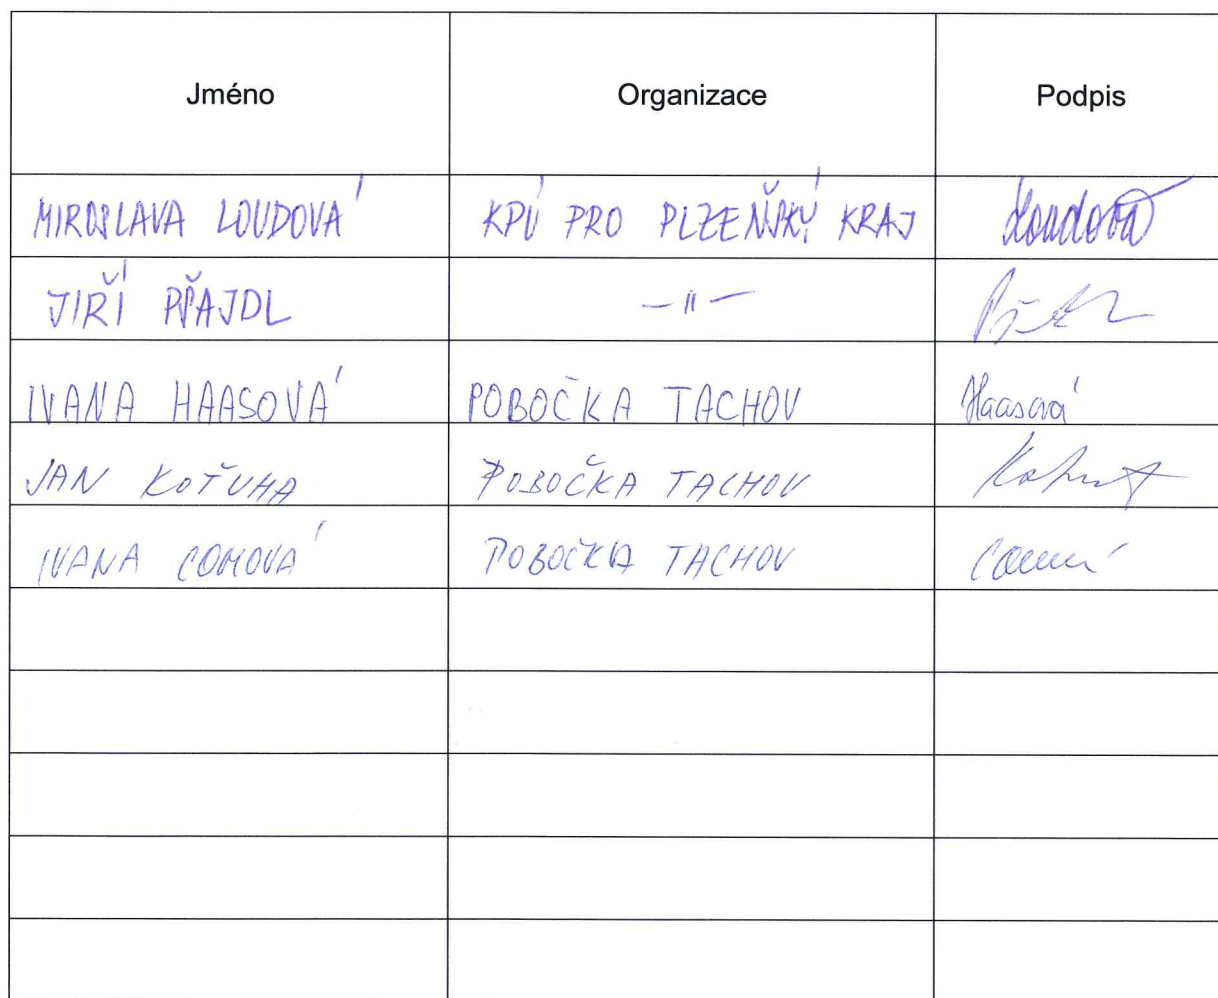 Jméno Organizace Podpis
MIROSLAVA LOUDOVÁ KPÚ PRO PLZEŇSKÝ KRAJ Loudová
JIŘÍ PŠAJDL —II—
IVANA HAASOVÁ POBOČKA TACHOV Haasová
JAN KOŤUHA POBOČKA TACHOV
IVANA COMOVÁ POBOČKA TACHOV